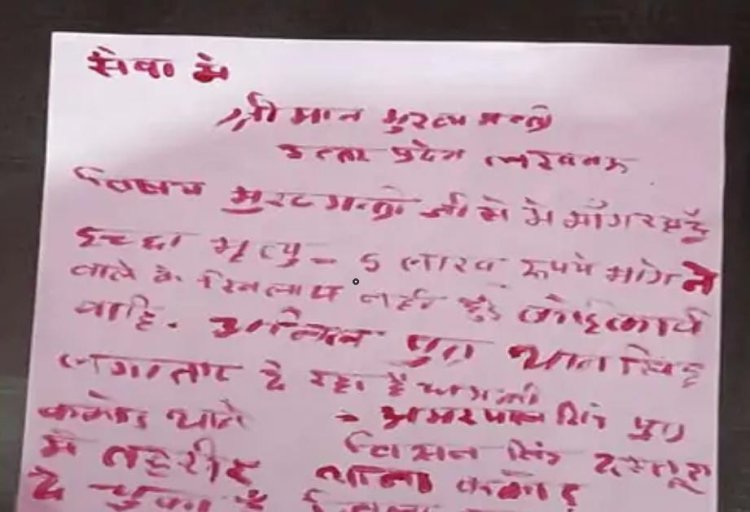 सेवा मे
श्री मान मुख्य मन्त्री
उत्तर प्रदेश लखनऊ
विषय मुख्य मन्त्री जी से मे माँग रहा हूँ
इच्छा मृत्यु - 5 लाख रूपये मांगने
वाले के खिलाप नही हुई कोई कार्य
वाहि. पुत्र थान सिंह
लगातार दे रहा है धमकी
ककोड़ थाने → अमरपाल सिंह पुत्र
मे तहरीर किसन सिंह दस्तूरा
दे चुका है थाना ककोड़